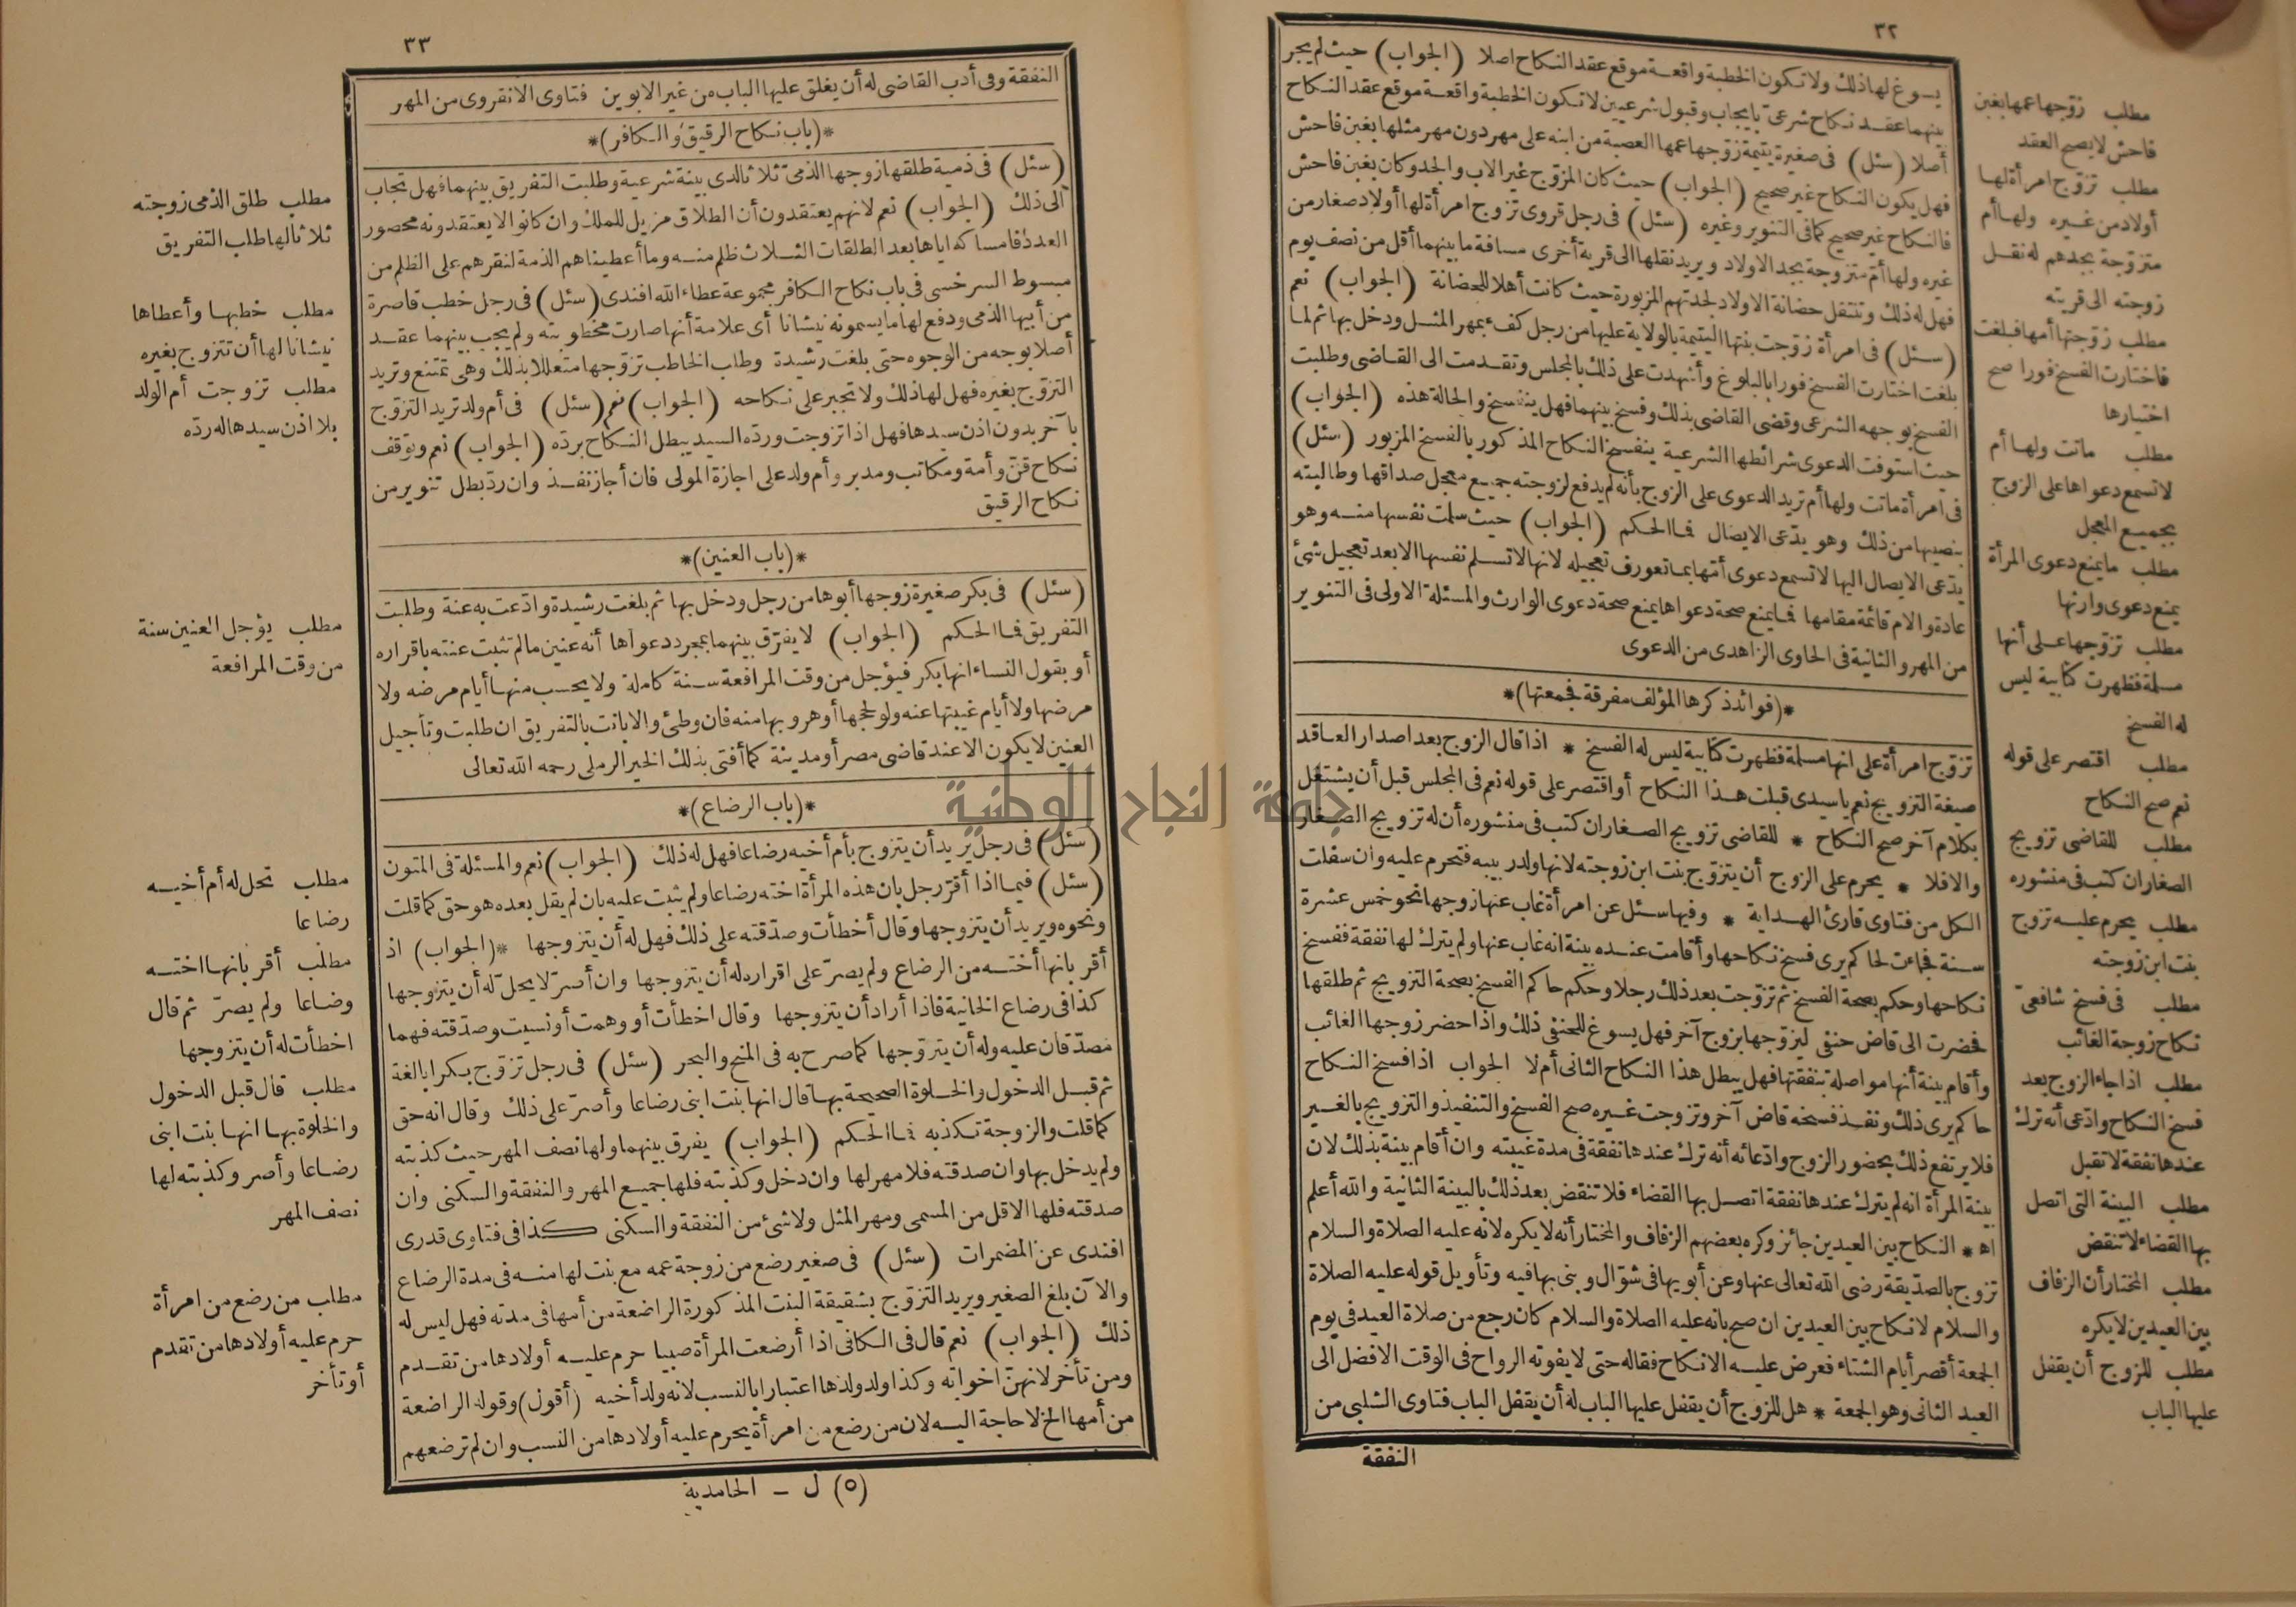 ٣٢
يسوغ لها ذلك ولا تكون الخطبة واقعة موقع عقد النكاح اصلا (الجواب) حيث لم يجر
بينهما عقد نكاح شرعى بايجاب وقبول شرعيين لا تكون الخطبة واقعة موقع عقد النكاح
أصلا (سئل) فى صغيرة يتيمة زوّجها عمها العصبة من ابنه على مهر دون مهر مثلها بغبن فاحش
فهل يكون النكاح غير صحيح (الجواب) حيث كان المزوّج غير الاب والجد وكان بغبن فاحش
فالنكاح غير صحيح كما فى التنوير وغيره (سئل) فى رجل قروى تزوج امرأة لها أولاد صغار من
غيره ولها أم متزوجة بجد الاولاد ويريد نقلها الى قرية أخرى مسافة ما بينهما أقل من نصف يوم
فهل له ذلك وتنتقل حضانة الاولاد لجدتهم المزبورة حيث كانت أهلا للحضانة (الجواب) نعم
(سئل) فى امرأة زوّجت بنتها اليتيمة بالولاية عليها من رجل كفء بمهر المثل ودخل بها ثم لما
بلغت اختارت الفسخ فورا بالبلوغ وأشهدت على ذلك بالمجلس وتقدمت الى القاضى وطلبت
الفسخ بوجهه الشرعى وقضى القاضى بذلك وفسخ بينهما فهل ينفسخ والحالة هذه (الجواب)
حيث استوفت الدعوى شرائطها الشرعية ينفسخ النكاح المذكور بالفسخ المزبور (سئل)
فى امرأة ماتت ولها أم تريد الدعوى على الزوج بأنه لم يدفع لزوجته جميع معجل صداقها وطالبته
بنصيبها من ذلك وهو يدّعى الايصال فما الحكم (الجواب) حيث سلمت نفسها منه وهو
يدّعى الايصال اليها لا تسمع دعوى أمّها بما تعورف تعجيله لانها لا تسلم نفسها الا بعد تعجيل شئ
عادة والام قائمة مقامها فما يمنع صحة دعواها يمنع صحة دعوى الوارث والمسئلة الاولى فى التنوير
من المهر والثانية فى الحاوى الزاهدى من الدعوى
*(فوائد ذكرها المؤلف مفرقة فجمعتها)*
تزوّج امرأة على انها مسلمة فظهرت كتابية ليس له الفسخ * اذا قال الزوج بعد اصدار العاقد
صيغة التزويج نعم يا سيدى قبلت هذا النكاح أو اقتصر على قوله نعم فى المجلس قبل أن يشتغل
بكلام آخر صح النكاح * للقاضى تزويج الصغار ان كتب فى منشوره أن له تزويج الصغار
والا فلا * يحرم على الزوج أن يتزوّج بنت ابن زوجته لانها ولد ربيبه فتحرم عليه وان سفلت
الكل من فتاوى قارئ الهداية * وفيها سئل عن امرأة غاب عنها زوجها نحو خمس عشرة
سنة فجاءت لحاكم يرى فسخ نكاحها وأقامت عنده بينة انه غاب عنها ولم يترك لها نفقة ففسخ
نكاحها وحكم بصحة الفسخ ثم تزوّجت بعد ذلك رجلا وحكم حاكم الفسخ بصحة التزويج ثم طلقها
فحضرت الى قاض حنفى ليزوّجها بزوج آخر فهل يسوغ للحنفى ذلك واذا حضر زوجها الغائب
وأقام بينة أنها مواصلة بنفقتها فهل يبطل هذا النكاح الثانى أم لا الجواب اذا فسخ النكاح
حاكم يرى ذلك ونفذ فسخه قاض آخر وتزوجت غيره صح الفسخ والتنفيذ والتزويج بالغير
فلا يرتفع ذلك بحضور الزوج وادّعائه أنه ترك عندها نفقة فى مدة غيبته وان أقام بينة بذلك لان
بينة المرأة انه لم يترك عندها نفقة اتصل بها القضاء فلا تنقض بعد ذلك بالبينة الثانية والله أعلم
اه * النكاح بين العيدين جائز وكره بعضهم الزفاف والمختار أنه لا يكره لانه عليه الصلاة والسلام
تزوج بالصدّيقة رضى الله تعالى عنها وعن أبويها فى شوّال وبنى بها فيه وتأويل قوله عليه الصلاة
والسلام لا نكاح بين العيدين ان صح بانه عليه الصلاة والسلام كان رجع من صلاة العيد فى يوم
الجمعة أقصر أيام الشتاء فعرض عليه الانكاح فقاله حتى لا يفوته الرواح فى الوقت الافضل الى
العيد الثانى وهو الجمعة * هل للزوج أن يقفل عليها الباب له أن يقفل الباب فتاوى الشلبى من
النفقة
مطلب زوّجها عمها بغبن
فاحش لا يصح العقد
مطلب تزوّج امرأة لها
أولاد من غيره ولها أم
متزوّجة بجدهم له نقل
زوجته الى قريته
مطلب زوّجتها أمها فبلغت
فاختارت الفسخ فورا صح
اختيارها
مطلب ماتت ولها أم
لا تسمع دعواها على الزوج
بجميع المعجل
مطلب ما يمنع دعوى المرأة
يمنع دعوى وارثها
مطلب تزوّجها على أنها
مسلمة فظهرت كتابية ليس
له الفسخ
مطلب اقتصر على قوله
نعم صح النكاح
مطلب للقاضى تزويج
الصغار ان كتب فى منشوره
مطلب يحرم عليه تزوج
بنت ابن زوجته
مطلب فى فسخ شافعىّ
نكاح زوجة الغائب
مطلب اذا جاء الزوج بعد
فسخ النكاح وادّعى أنه ترك
عندها نفقة لا تقبل
مطلب البينة التى اتصل
بها القضاء لا تنقض
مطلب المختار أن الزفاف
بين العيدين لا يكره
مطلب للزوج أن يقفل
عليها الباب
٣٣
النفقة وفى أدب القاضى له أن يغلق عليها الباب من غير الابوين فتاوى الانقروى من المهر
*(باب نكاح الرقيق والكافر)*
(سئل) فى ذمية طلقها زوجها الذمى ثلاثا لدى بينة شرعية وطلبت التفريق بينهما فهل تجاب
الى ذلك (الجواب) نعم لانهم يعتقدون أن الطلاق مزيل للملك وان كانوا لا يعتقدونه محصور
العدد فامساكه اياها بعد الطلقات الثلاث ظلم منه وما أعطيناهم الذمة لنقرهم على الظلم من
مبسوط السرخسى فى باب نكاح الكافر مجموعة عطاء الله افندى (سئل) فى رجل خطب قاصرة
من أبيها الذمى ودفع لها ما يسمونه نيشانا أى علامة أنها صارت مخطوبته ولم يجب بينهما عقد
أصلا بوجه من الوجوه حتى بلغت رشيدة وطلب الخاطب تزوّجها متعللا بذلك وهى تمتنع وتريد
التزوّج بغيره فهل لها ذلك ولا تجبر على نكاحه (الجواب) نعم (سئل) فى أم ولد تريد التزوّج
بآخر بدون اذن سيدها فهل اذا تزوجت وردّه السيد يبطل النكاح بردّه (الجواب) نعم وتوقف
نكاح قنّ وأمة ومكاتب ومدبر وأم ولد على اجازة المولى فان أجاز نفذ وان ردّ بطل تنوير من
نكاح الرقيق
*(باب العنين)*
(سئل) فى بكر صغيرة زوجها أبوها من رجل ودخل بها ثم بلغت رشيدة وادّعت به عنة وطلبت
التفريق فما الحكم (الجواب) لا يفرّق بينهما بمجرد دعواها أنه عنين ما لم تثبت عنته باقراره
أو بقول النساء انها بكر فيؤجل من وقت المرافعة سنة كاملة ولا يحسب منها أيام مرضه ولا
مرضها ولا أيام غيبتها عنه ولو لحجها أو هروبها منه فان وطئ والا بانت بالتفريق ان طلبت وتأجيل
العنين لا يكون الا عند قاضى مصر أو مدينة كما أفتى بذلك الخير الرملى رحمه الله تعالى
*(باب الرضاع)*
(سئل) فى رجل يريد أن يتزوج بأم أخيه رضاعا فهل له ذلك (الجواب) نعم والمسئلة فى المتون
(سئل) فيما اذا أقرّ رجل بان هذه المرأة اخته رضاعا ولم يثبت عليه بان لم يقل بعده هو حق كما قلت
ونحوه ويريد أن يتزوجها وقال أخطأت وصدّقته على ذلك فهل له أن يتزوجها *(الجواب) اذ
أقر بانها أخته من الرضاع ولم يصرّ على اقراره له أن يتزوجها وان أصرّ لا يحلّ له أن يتزوجها
كذا فى رضاع الخانية فاذا أراد أن يتزوجها وقال اخطأت أو وهمت أو نسيت وصدّقته فهما
مصدّقان عليه وله أن يتزوّجها كما صرح به فى المنح والبحر (سئل) فى رجل تزوّج بكرا بالغة
ثم قبل الدخول والخلوة الصحيحة بها قال انها بنت ابنى رضاعا وأصرّ على ذلك وقال انه حق
كما قلت والزوجة تكذبه فما الحكم (الجواب) يفرق بينهما ولها نصف المهر حيث كذبته
ولم يدخل بها وان صدقته فلا مهر لها وان دخل وكذبته فلها جميع المهر والنفقة والسكنى وان
صدقته فلها الاقل من المسمى ومهر المثل ولا شئ من النفقة والسكنى كذا فى فتاوى قدرى
افندى عن المضمرات (سئل) فى صغير رضع من زوجة عمه مع بنت لها منه فى مدة الرضاع
والآن بلغ الصغير ويريد التزوّج بشقيقة البنت المذكورة الراضعة من أمها فى مدته فهل ليس له
ذلك (الجواب) نعم قال فى الكافى اذا أرضعت المرأة صبيا حرم عليه أولادها من تقدم
ومن تأخر لانهنّ اخواته وكذا ولد ولدها اعتبارا بالنسب لانه ولد أخيه (أقول) وقوله الراضعة
من أمها الخ لا حاجة اليه لان من رضع من امرأة يحرم عليه أولادها من النسب وان لم ترضعهم
(٥) ل - الحامدية
مطلب طلق الذمى زوجته
ثلاثا لها طلب التفريق
مطلب خطبها وأعطاها
نيشانا لها أن تتزوج بغيره
مطلب تزوجت أم الولد
بلا اذن سيدها له ردّه
مطلب يؤجل العنين سنة
من وقت المرافعة
مطلب تحل له أم أخيه
رضاعا
مطلب أقر بانها اخته
رضاعا ولم يصرّ ثم قال
اخطأت له أن يتزوجها
مطلب قال قبل الدخول
والخلوة بها انها بنت ابنى
رضاعا وأصر وكذبته لها
نصف المهر
مطلب من رضع من امرأة
حرم عليه أولادها من تقدم
أو تأخر
جامعة النجاح الوطنية